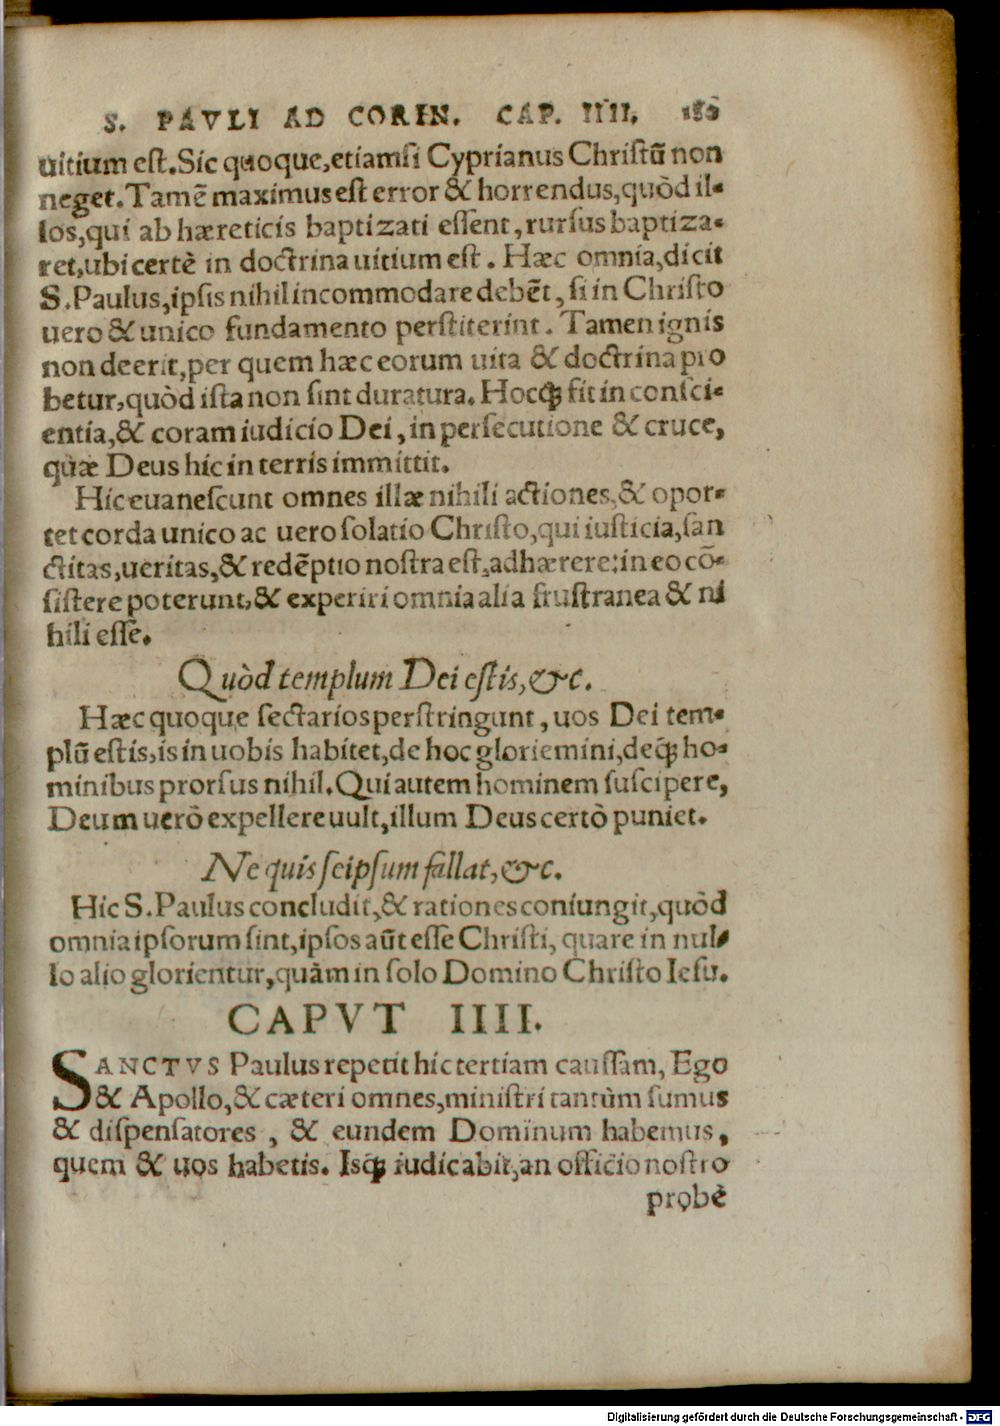 S. PAVLI AD CORIN. CAP. IIII.
uitium est. Sic quoque, etiamsi Cyprianus Christū non
neget. Tamē maximus est error & horrendus, quòd il-
los, qui ab hæreticis baptizati essent, rursus baptiza-
ret, ubi certè in doctrina uitium est. Hæc omnia, dicit
S. Paulus, ipsis nihil incommodare debēt, si in Christo
uero & unico fundamento perstiterint. Tamen ignis
non deerit, per quem hæc eorum uita & doctrina pro
betur, quòd ista non sint duratura. Hocq́; fit in consci-
entia, & coram iudicio Dei, in persecutione & cruce,
quæ Deus hic in terris immittit.
Hic euanescunt omnes illæ nihili actiones, & opor-
tet corda unico ac uero solatio Christo, qui iusticia, san
ctitas, ueritas, & redēptio nostra est, adhærere: in eo cō-
sistere poterunt, & experiri omnia alia frustranea & ni
hili esse.
Quòd templum Dei estis, &c.
Hæc quoque sectarios perstringunt, uos Dei tem-
plū estis, is in uobis habitet, de hoc gloriemini, deq́; ho-
minibus prorsus nihil. Qui autem hominem suscipere,
Deum uerò expellere uult, illum Deus certò puniet.
Ne quis seipsum fallat, &c.
Hic S. Paulus concludit, & rationes coniungit, quòd
omnia ipsorum sint, ipsos aūt esse Christi, quare in nul-
lo alio glorientur, quàm in solo Domino Christo Iesu.
CAPVT IIII.
SANCTVS Paulus repetit hic tertiam caussam, Ego
& Apollo, & cæteri omnes, ministri tantùm sumus
& dispensatores, & eundem Dominum habemus,
quem & uos habetis. Isq́; iudicabit, an officio nostro
probè
Digitalisierung gefördert durch die Deutsche Forschungsgemeinschaft - DFG